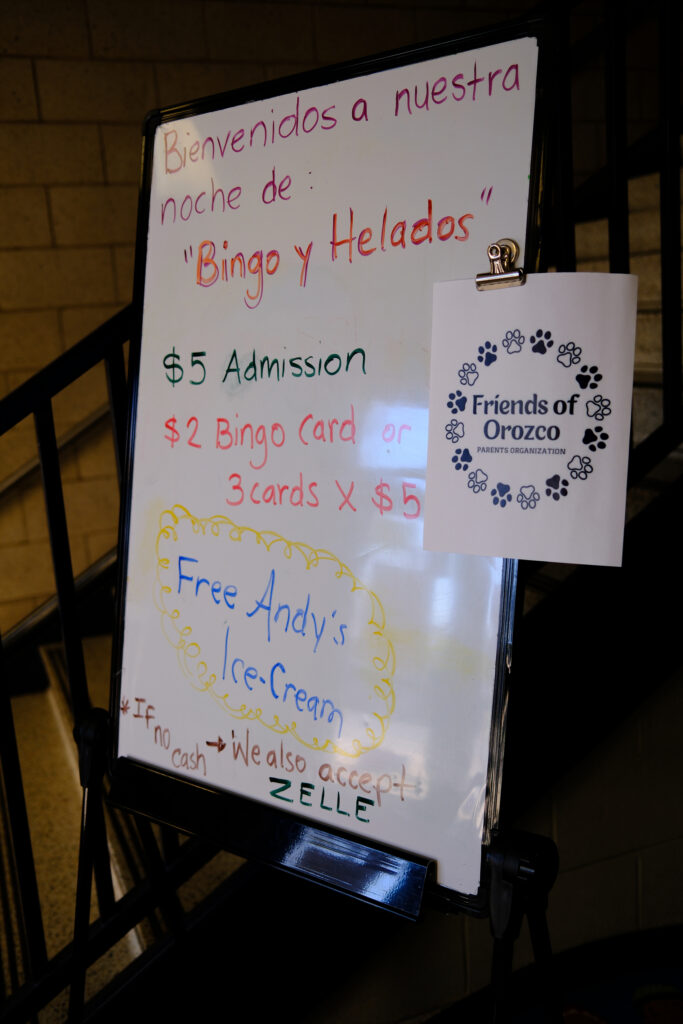 Bienvenidos a nuestra
noche de :
"Bingo y Helados"
$5 Admission
$2 Bingo Card or
3 cards X $5
Free Andy's
Ice-Cream
*If no cash → We also accept
ZELLE
Friends of
Orozco
PARENTS ORGANIZATION